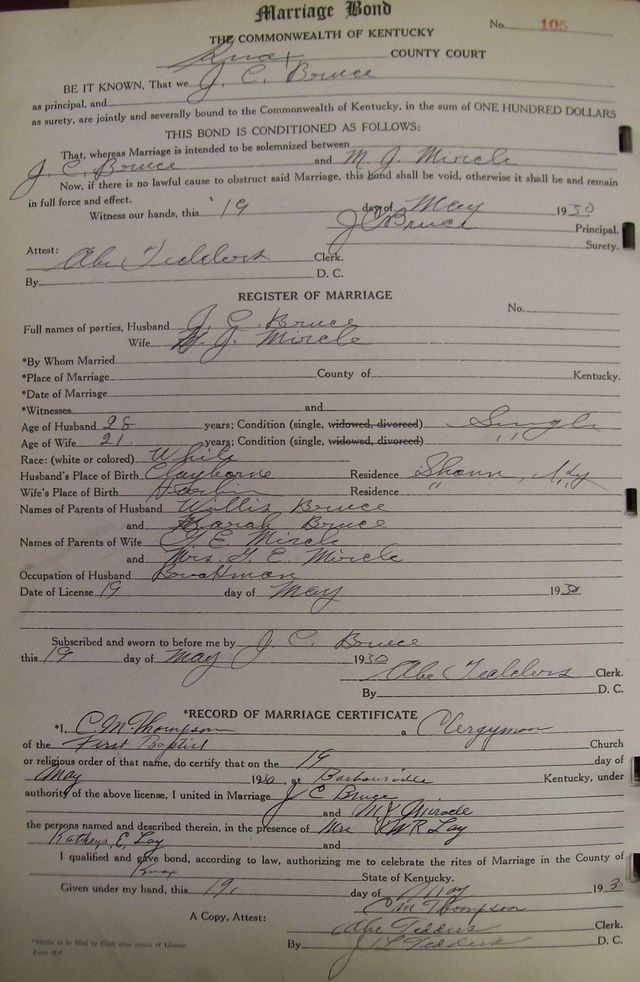 Marriage Bond
No. 105
THE COMMONWEALTH OF KENTUCKY
Knox COUNTY COURT
BE IT KNOWN, That we J. C. Bruce
as principal, and
as surety, are jointly and severally bound to the Commonwealth of Kentucky, in the sum of ONE HUNDRED DOLLARS
THIS BOND IS CONDITIONED AS FOLLOWS:
That, whereas Marriage is intended to be solemnized between
J. C. Bruce and M. J. Mircle
Now, if there is no lawful cause to obstruct said Marriage, this bond shall be void, otherwise it shall be and remain
in full force and effect.
Witness our hands, this 19 day of May 1930
J C Bruce Principal.
Surety.
Attest:
Abe Tedders Clerk.
By D. C.
REGISTER OF MARRIAGE
No.
Full names of parties, Husband J. C. Bruce
Wife M. J. Mircle
*By Whom Married
*Place of Marriage County of Kentucky.
*Date of Marriage
*Witnesses and
Age of Husband 28 years; Condition (single, widowed, divorced) Single
Age of Wife 21 years; Condition (single, widowed, divorced) " "
Race: (white or colored) White
Husband's Place of Birth Clayborne Residence Ky
Wife's Place of Birth Residence " "
Names of Parents of Husband Willis Bruce
and Sarah Bruce
Names of Parents of Wife G. E. Mircle
and Mrs. G. E. Mircle
Occupation of Husband
Date of License 19 day of May 1930
Subscribed and sworn to before me by J. C. Bruce
this 19 day of May 1930
Abe Tedders Clerk.
By D. C.
*RECORD OF MARRIAGE CERTIFICATE
*I, C. M. Thompson a Clergyman
of the First Baptist Church
or religious order of that name, do certify that on the 19 day of
May 1930, at Barbourville Kentucky, under
authority of the above license, I united in Marriage J C Bruce
and M J Miracle
the persons named and described therein, in the presence of Mrs W R Lay
Kathryn E. Lay and
I qualified and gave bond, according to law, authorizing me to celebrate the rites of Marriage in the County of
Knox State of Kentucky.
Given under my hand, this 19, day of May 1930
C M Thompson
A Copy, Attest: Abe Tedders Clerk.
By J L Tedders D. C.
*Blanks to be filled by Clerk after return of License